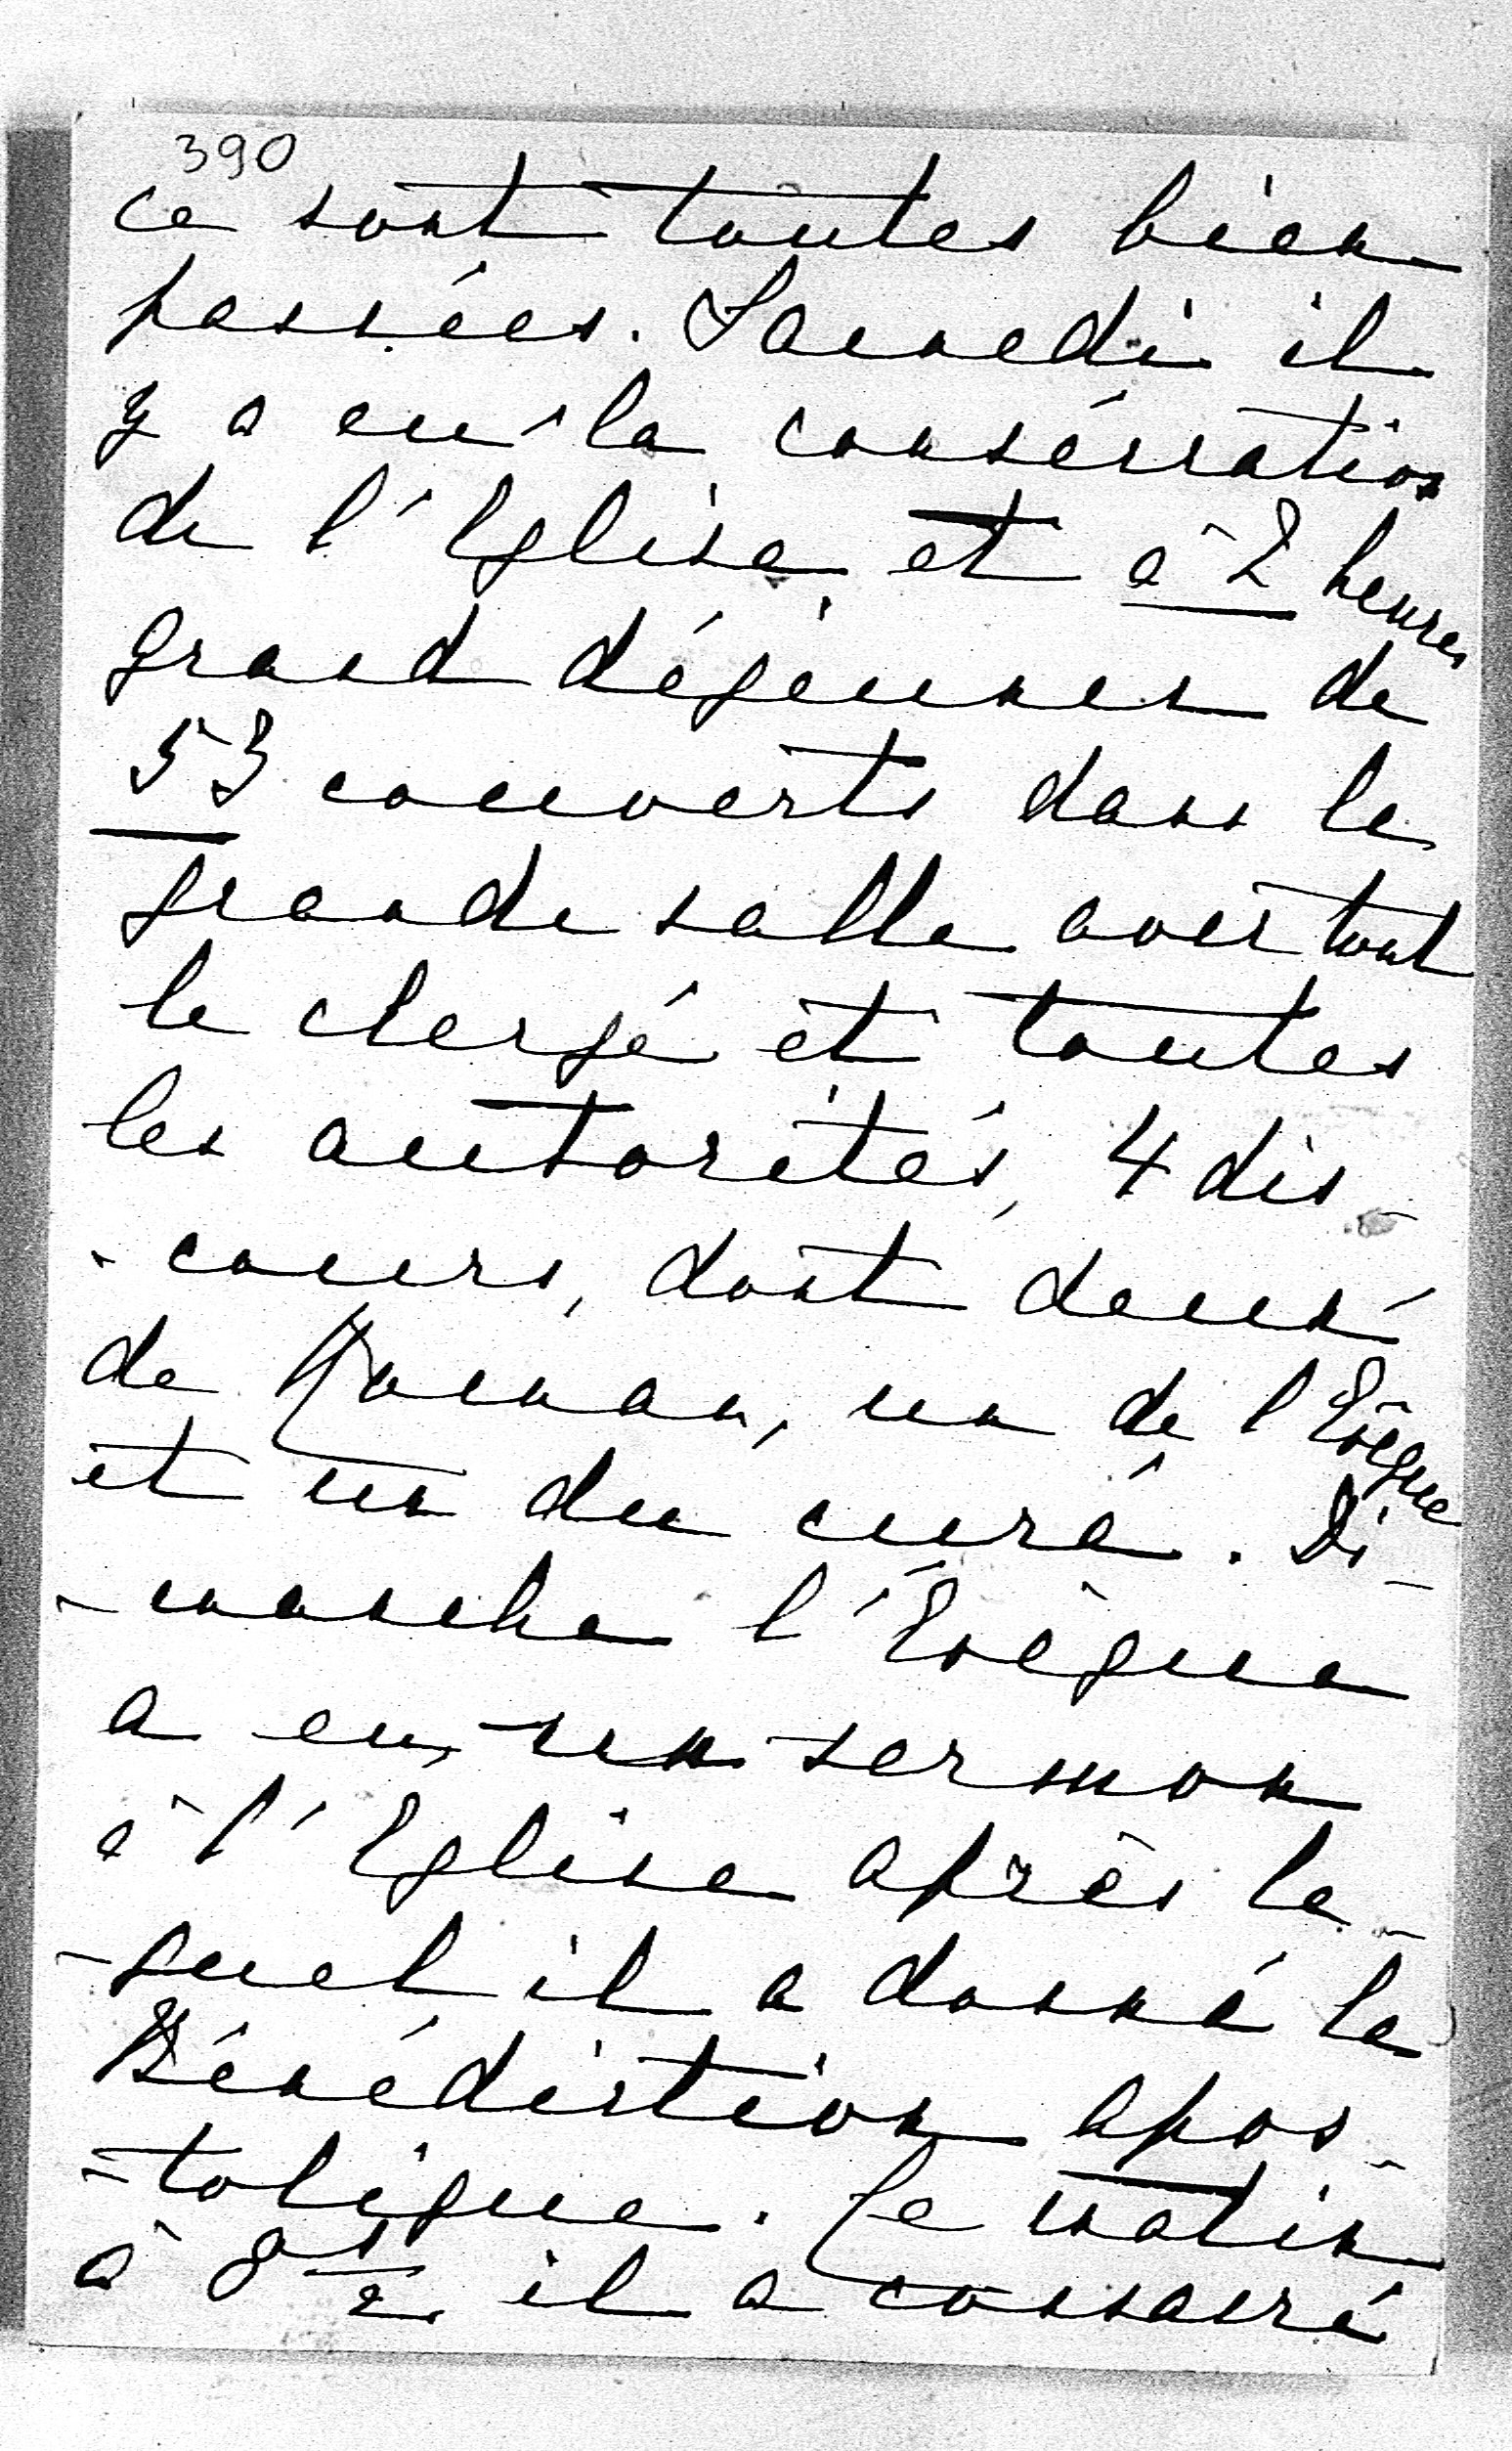 390
ce sont toutes bien
passées. Samedi il
y a eu la consécration
de l'Eglise et à 2 heures
grand déjeuner de
53 couverts dans la
grande salle avec tout
le clergé et toutes
les autorités, 4 dis-
-cours, dont deux
de Maman, un de l'Evêque
et un du curé. Di-
-manche l'Evêque
a eu un sermon
à l'Eglise après le-
-quel il a donné la
Bénédiction apos-
-tolique. Le matin
à 8 1/2 il a consacré